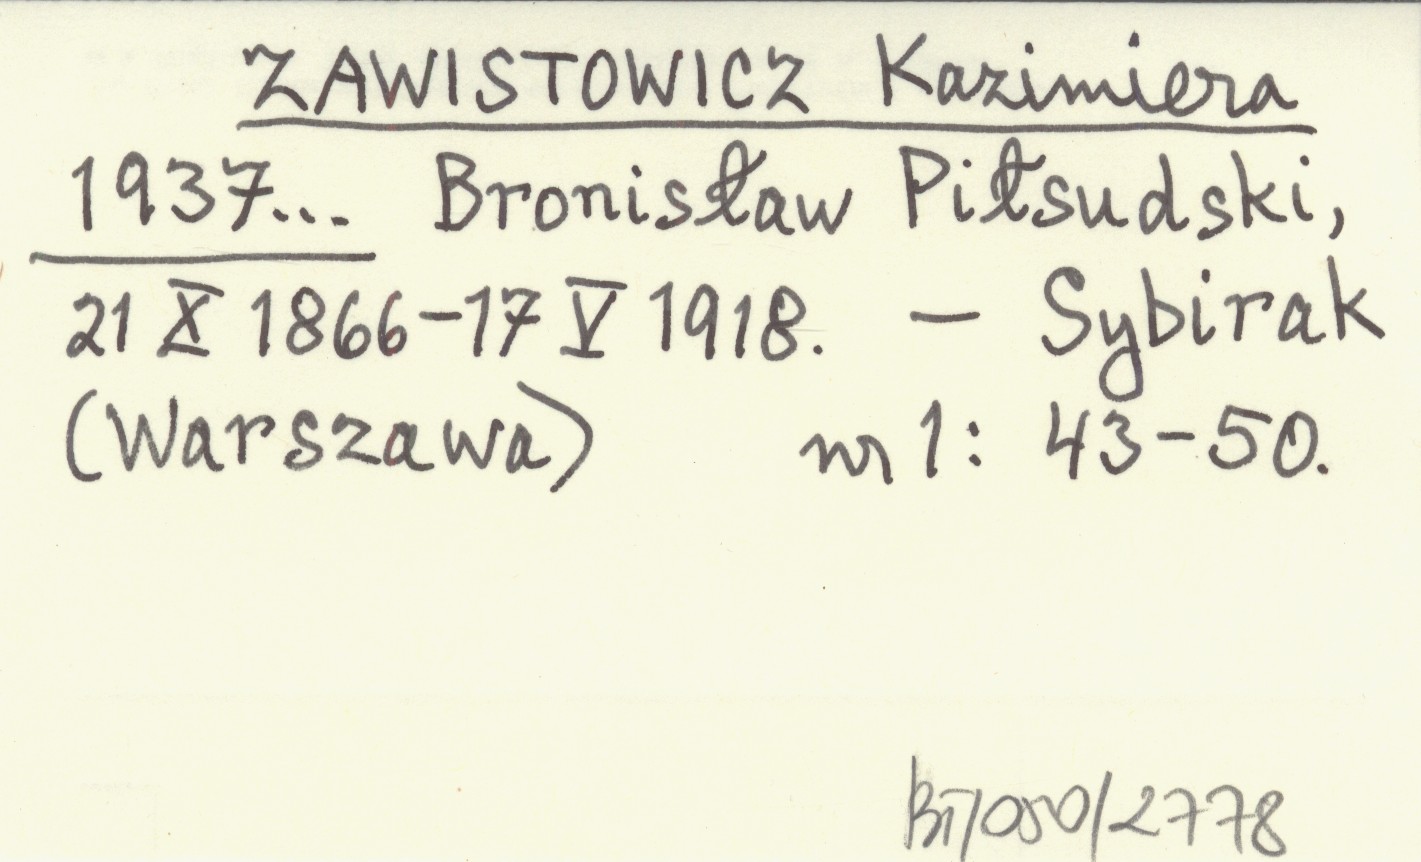 ZAWISTOWICZ Kazimiera
1937... Bronisław Piłsudski,
21 X 1866-17 V 1918. – Sybirak
(Warszawa) nr 1: 43-50.
BI/050/2778